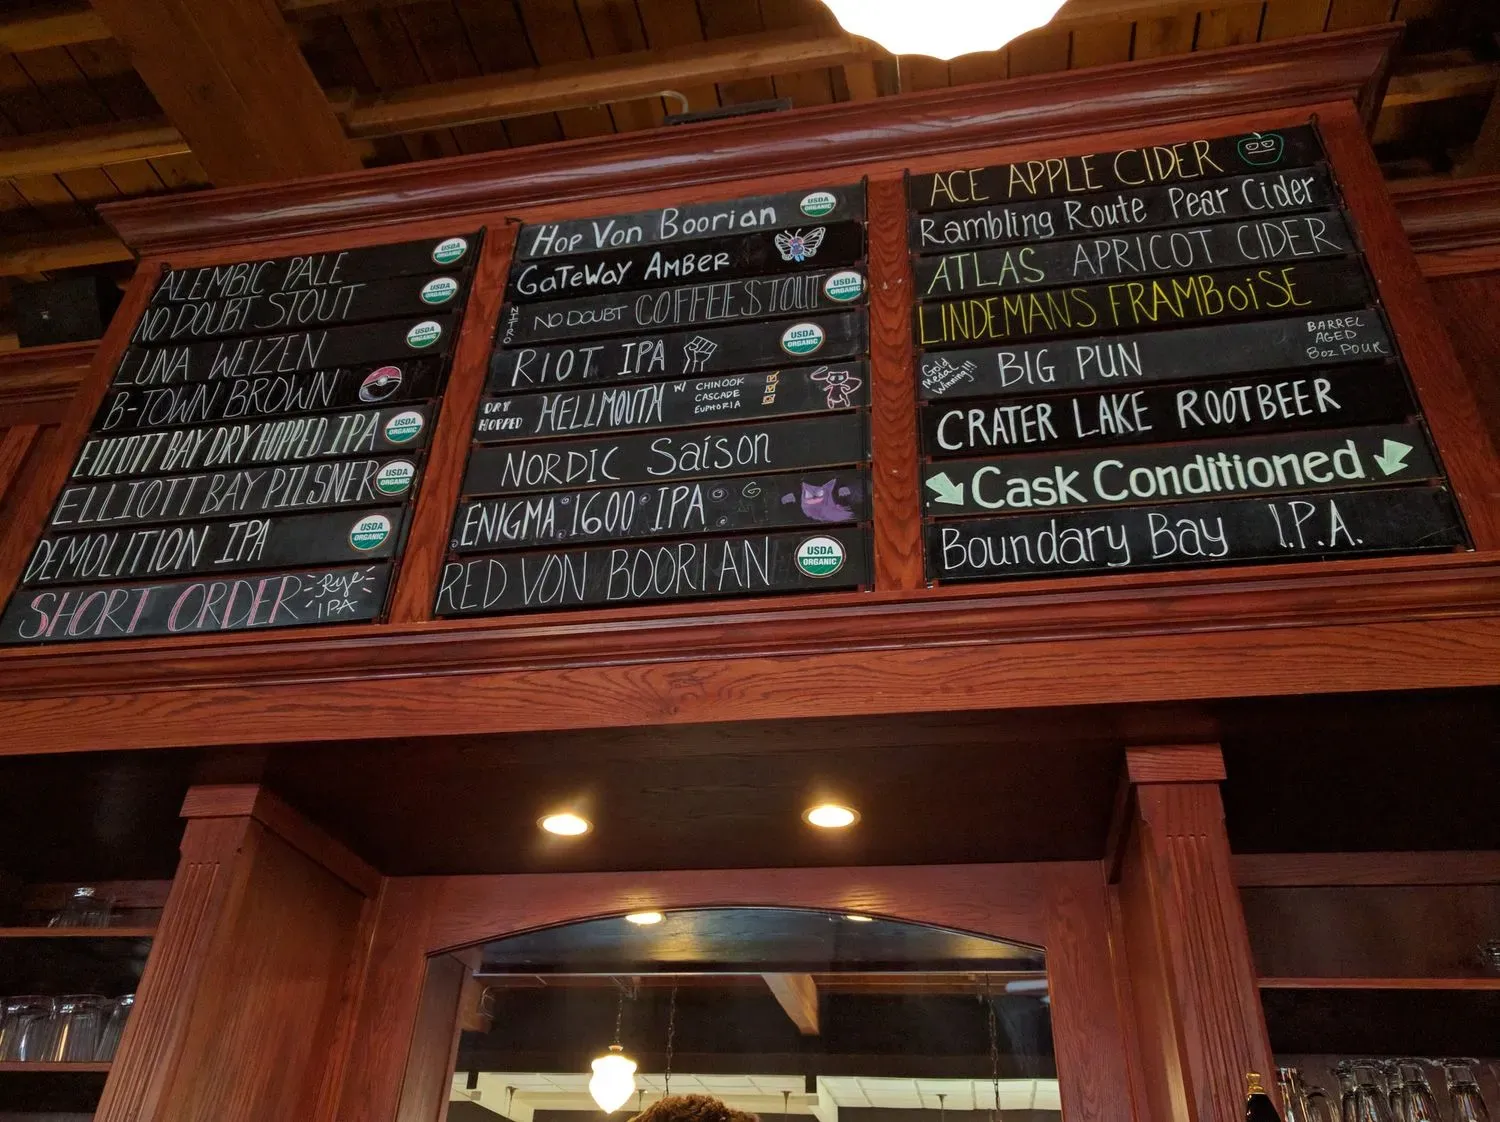 ALEMBIC PALE
USDA
ORGANIC
NO DOUBT STOUT
USDA
ORGANIC
LUNA WEIZEN
USDA
ORGANIC
B-TOWN BROWN
ELLIOTT BAY DRY HOPPED IPA
USDA
ORGANIC
ELLIOTT BAY PILSNER
USDA
ORGANIC
DEMOLITION IPA
USDA
ORGANIC
SHORT ORDER Rye
IPA
Hop Von Boorian
USDA
ORGANIC
GaTeWay AMBER
NITRO
NO DOUBT COFFEE STOUT
USDA
ORGANIC
RIOT IPA
USDA
ORGANIC
DRY
HOPPED
HELLMOUTH
W/ CHINOOK
CASCADE
EUPHORIA
NORDIC Saison
ENIGMA 1600 IPA
RED VON BOORIAN
USDA
ORGANIC
ACE APPLE CIDER
Rambling Route Pear Cider
ATLAS APRICOT CIDER
LINDEMANS FRAMBOiSE
Gold
Medal
Winning!!!
BIG PUN
BARREL
AGED
8oz POUR
CRATER LAKE ROOTBEER
Cask Conditioned
Boundary Bay I.P.A.